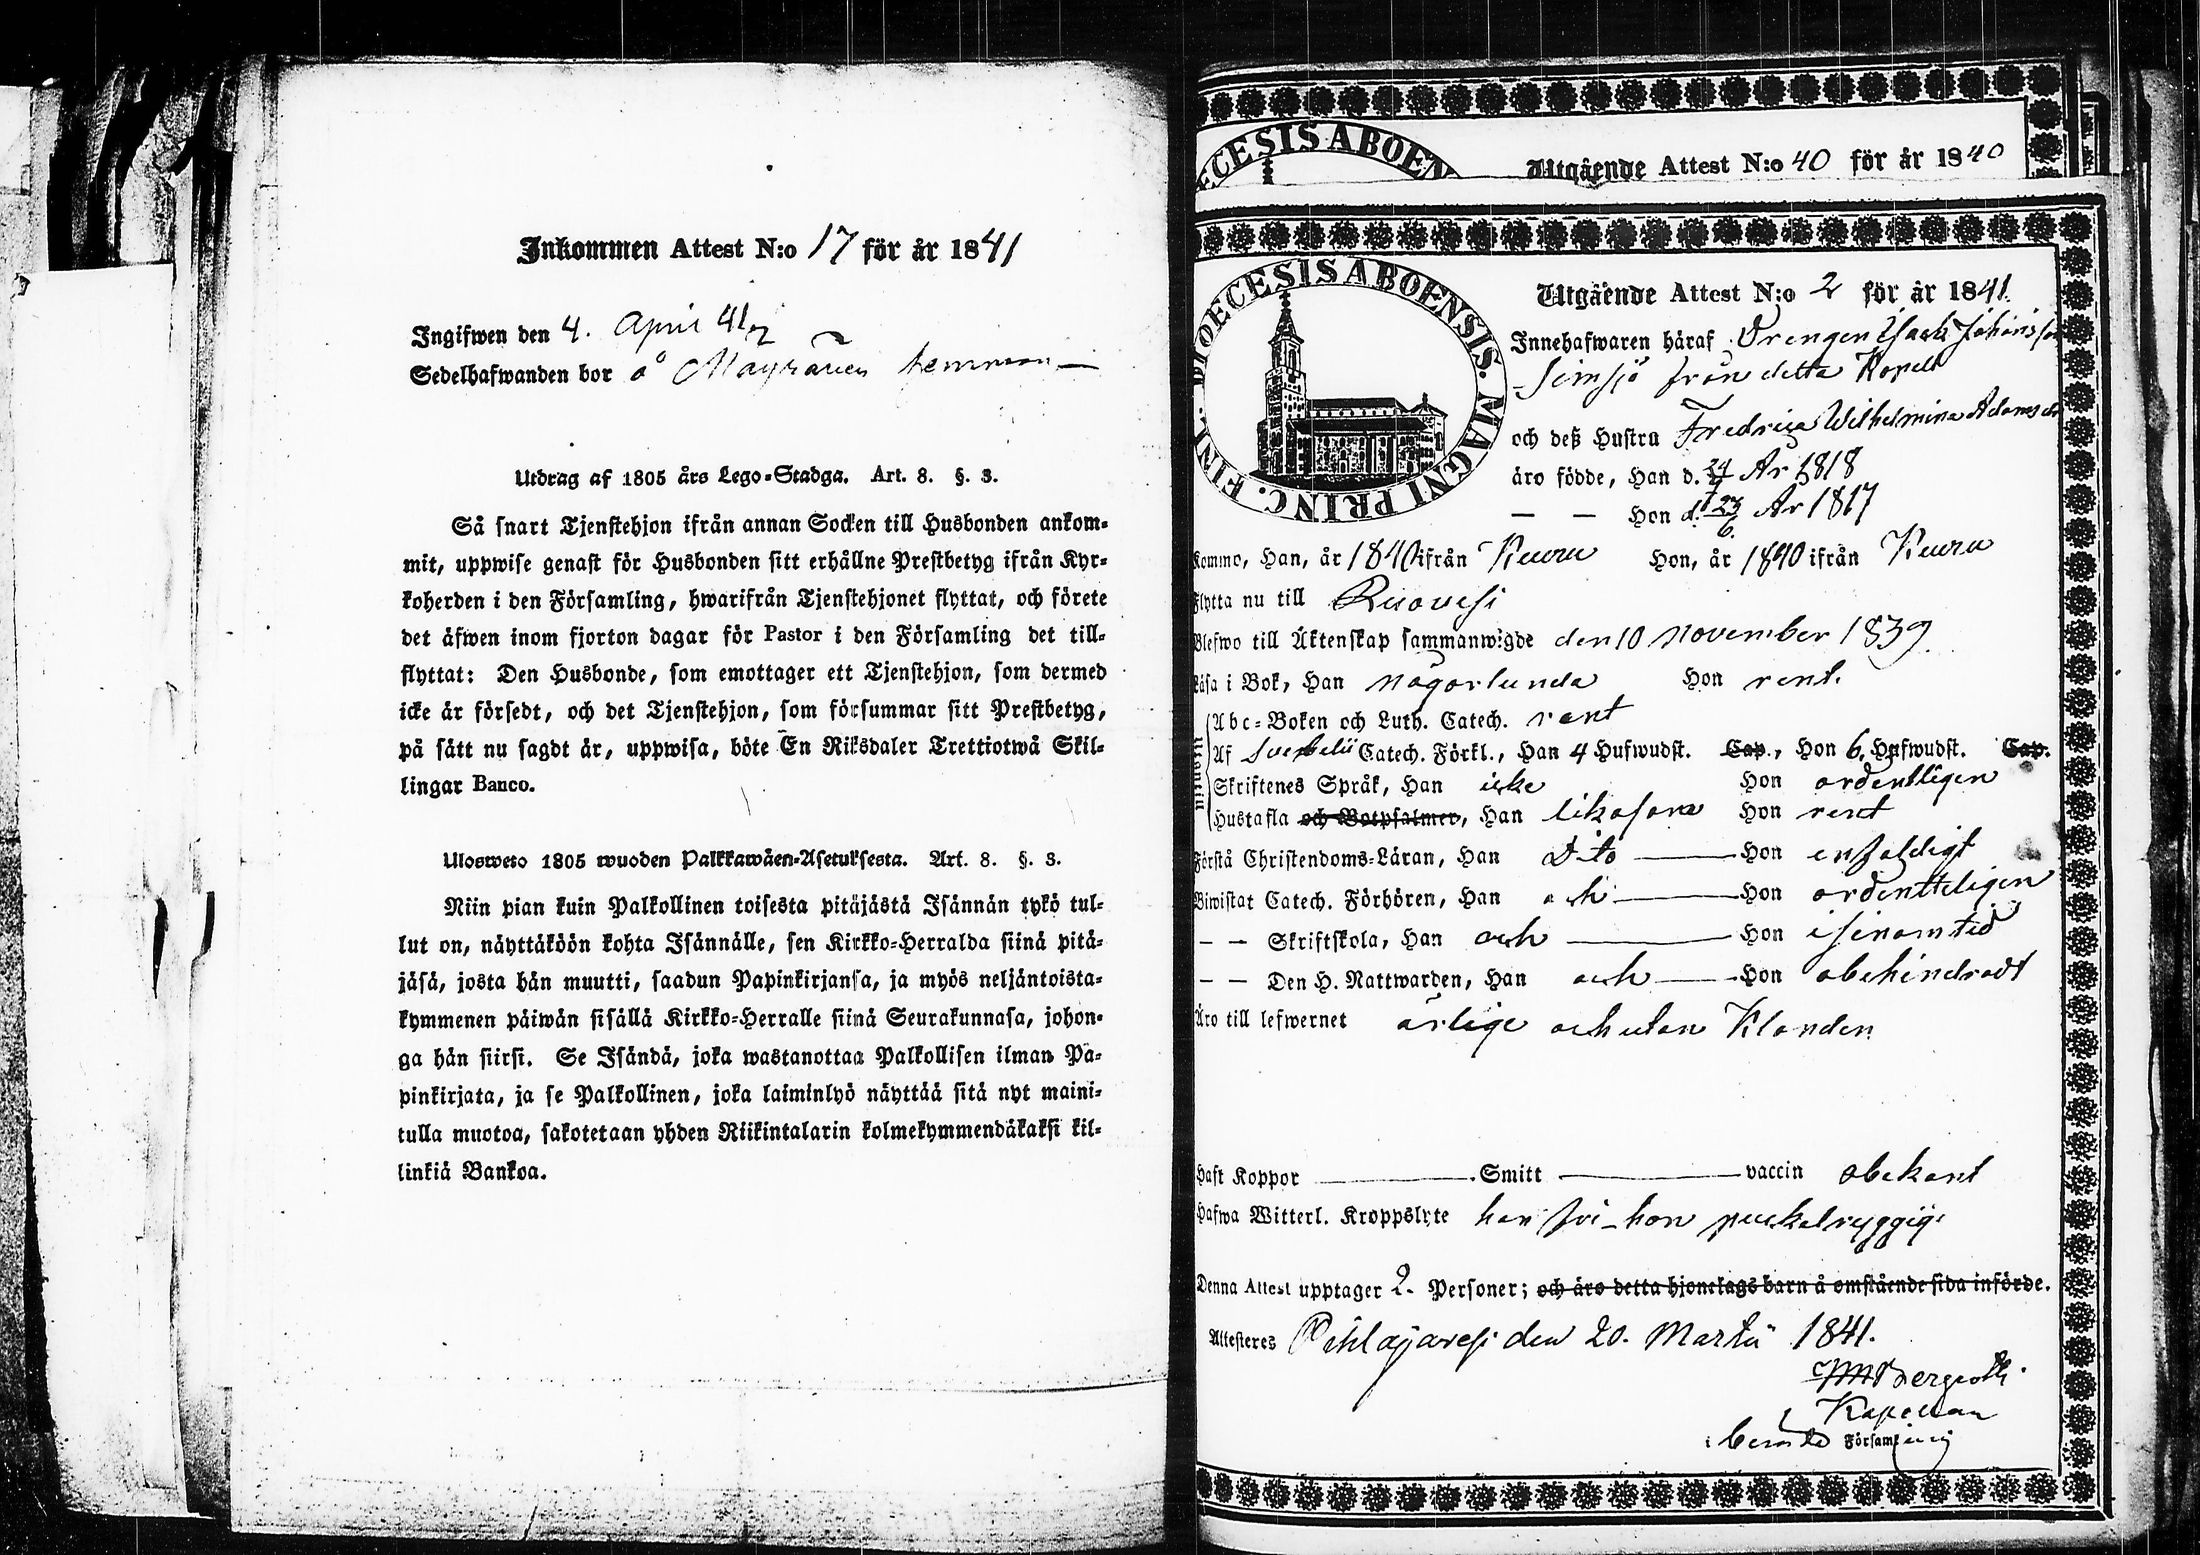 Inkommen Attest N:o 17 för år 1841
Ingifwen den 4. April 41
Sedelhafwanden bor å Mäyränen hemman
Utdrag af 1805 års Lego-Stadga. Art. 8. §. 3.
Så snart Tjenstehjon ifrån annan Socken till Husbonden ankom-
mit, uppwise genast för Husbonden sitt erhållne Prestbetyg ifrån Kyr-
koherden i den Församling, hwarifrån Tjenstehjonet flyttat, och förete
det äfwen inom fjorton dagar för Pastor i den Församling det till-
flyttat: Den Husbonde, som emottager ett Tjenstehjon, som dermed
icke är försedt, och det Tjenstehjon, som försummar sitt Prestbetyg,
på sätt nu sagdt är, uppwisa, böte En Riksdaler Trettiotwå Skil-
lingar Banco.
Ulosweto 1805 wuoden Palkkawäen-Asetuksesta. Art. 8. §. 3.
Niin pian kuin Palkollinen toisesta pitäjästä Isännän tykö tul-
lut on, näyttäköön kohta Isännälle, sen Kirkko-Herralda siinä pitä-
jäsä, josta hän muutti, saadun Papinkirjansa, ja myös neljäntoista-
kymmenen päiwän sisällä Kirkko-Herralle siinä Seurakunnasa, johon-
ga hän siirsi. Se Isändä, joka wastanottaa Palkollisen ilman Pa-
pinkirjata, ja se Palkollinen, joka laiminlyö näyttää sitä nyt maini-
tulla muotoa, sakotetaan yhden Riikintalarin kolmekymmendäkaksi kil-
linkiä Bankoa.
ECESIS ABOEN
Utgående Attest N:o 40 för år 1840
DIOECESIS ABOENSIS. MAGNI PRINC. FINL.
Utgående Attest N:o 2 för år 1841.
Innehafwaren häraf Drengen Isack Johansson
Simsjö från detta Kapell
och deß Hustru Fredrica Wilhelmina Adamsdr
äro födde, Han d. 24 År 1818
— — Hon d. 23/6 År 1817
Kommo, Han, år 1840 ifrån Keuru Hon, år 1840 ifrån Keuru
Flytta nu till Ruovesi
Blefwo till Äktenskap sammanwigde den 10 November 1839
Läsa i Bok, Han någorlunda Hon rent.
Abc-Boken och Luth. Catech. rent
Af Svebelii Catech. Förkl., Han 4 Hufwudst. Cap., Hon 6, Hufwudst. Cap.
Skriftenes Språk, Han icke Hon ordentligen
Hustafla och Botpsalmer, Han likasom Hon rent
Förstå Christendoms-Läran, Han Dito Hon enfaldigt
Biwistat Catech. Förhören, Han och Hon ordentteligen
— — Skriftskola, Han och Hon i sinom tid
— — Den H. Nattwarden, Han och Hon obehindradt
Äro till lefwernet ärlige och utan Klander
Haft Koppor Smitt vaccin obekant
Hafwa Witterl. Kroppslyte han fri - hon puckelryggig
Denna Attest upptager 2. Personer; och äro detta hjonelags barn å omstående sida införde.
Attesteres Pihlajavesi den 20. Martii 1841.
Bergroth
Kapellan
i bemälte Församling